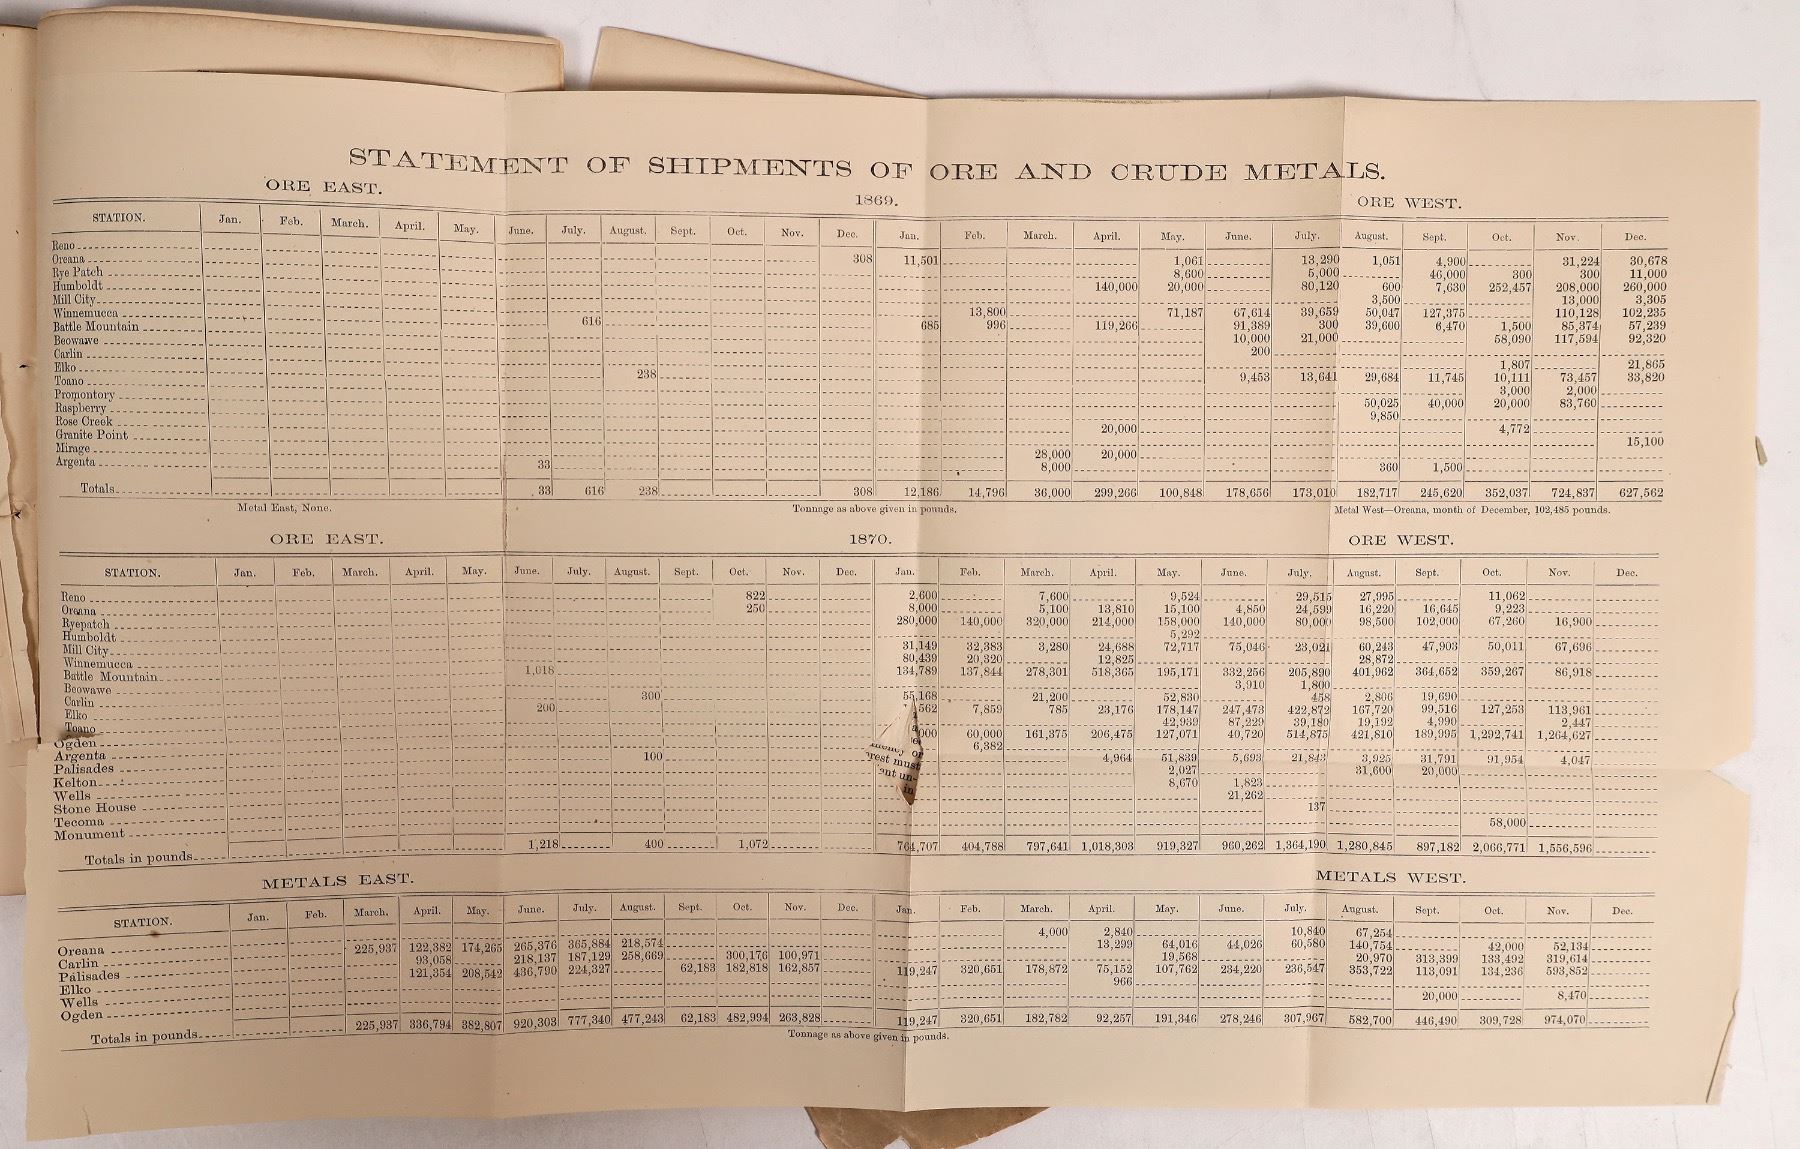 STATEMENT OF SHIPMENTS OF ORE AND CRUDE METALS.
ORE EAST. 1869. ORE WEST.
STATION. Jan. Feb. March. April. May. June. July. August. Sept. Oct. Nov. Dec. Jan. Feb. March. April. May. June. July. August. Sept. Oct. Nov. Dec.
Reno 308 11,501 1,061 13,290 1,051 4,900 31,224 30,678
Oreana 8,600 5,000 46,000 300 300 11,000
Rye Patch 140,000 20,000 80,120 600 7,630 252,457 208,000 260,000
Humboldt 3,500 13,000 3,305
Mill City 13,800 71,187 67,614 39,659 50,047 127,375 110,128 102,235
Winnemucca 616 685 996 119,266 91,389 300 39,600 6,470 1,500 85,374 57,239
Battle Mountain 10,000 21,000 58,090 117,594 92,320
Beowawe 200
Carlin 1,807 21,865
Elko 238 9,453 13,641 29,684 11,745 10,111 73,457 33,820
Toano 3,000 2,000
Promontory 50,025 40,000 20,000 83,760
Raspberry 9,850
Rose Creek 20,000 4,772
Granite Point 15,100
Mirage 28,000 20,000
Argenta 33 8,000 360 1,500
Totals 33 616 238 308 12,186 14,796 36,000 299,266 100,848 178,656 173,010 182,717 245,620 352,037 724,837 627,562
Metal East, None. Tonnage as above given in pounds. Metal West—Oreana, month of December, 102,485 pounds.
ORE EAST. 1870. ORE WEST.
STATION. Jan. Feb. March. April. May. June. July. August. Sept. Oct. Nov. Dec. Jan. Feb. March. April. May. June. July. August. Sept. Oct. Nov. Dec.
Reno 822 2,600 7,600 9,524 29,515 27,995 11,062
Oreana 250 8,000 5,100 13,810 15,100 4,850 24,599 16,220 16,645 9,223
Ryepatch 280,000 140,000 320,000 214,000 158,000 140,000 80,000 98,500 102,000 67,260 16,900
Humboldt 5,292
Mill City 31,149 32,383 3,280 24,688 72,717 75,046 23,021 60,243 47,903 50,011 67,696
Winnemucca 80,439 20,320 12,825 28,872
Battle Mountain 1,018 134,789 137,844 278,301 518,365 195,171 332,256 205,890 401,962 364,652 359,267 86,918
Beowawe 3,910 1,800
Carlin 300 55,168 21,200 52,830 458 2,806 19,690
Elko 200 562 7,859 785 23,176 178,147 247,473 422,872 167,720 99,516 127,253 113,961
Toano 42,939 87,229 39,180 19,192 4,990 2,447
Ogden 000 60,000 161,375 206,475 127,071 40,720 514,875 421,810 189,995 1,292,741 1,264,627
Argenta 6,382
Palisades 100 4,964 51,839 5,693 21,843 3,925 31,791 91,954 4,047
Kelton 2,027 31,600 20,000
Wells 8,670 1,823
Stone House 21,262
Tecoma 137
Monument 58,000
or
rest must
ant un-
in
Totals in pounds 1,218 400 1,072 764,707 404,788 797,641 1,018,303 919,327 960,262 1,364,190 1,280,845 897,182 2,066,771 1,556,596
METALS EAST. METALS WEST.
STATION. Jan. Feb. March. April. May. June. July. August. Sept. Oct. Nov. Dec. Jan. Feb. March. April. May. June. July. August. Sept. Oct. Nov. Dec.
Oreana 4,000 2,840 10,840 67,254
Carlin 225,937 122,382 174,265 265,376 365,884 218,574 13,299 64,016 44,026 60,580 140,754 42,000 52,134
Palisades 93,058 218,137 187,129 258,669 300,176 100,971 19,568 20,970 313,399 133,492 319,614
Elko 121,354 208,542 436,790 224,327 62,183 182,818 162,857 119,247 320,651 178,872 75,152 107,762 234,220 236,547 353,722 113,091 134,236 593,852
Wells 966
Ogden 20,000 8,470
Totals in pounds 225,937 336,794 382,807 920,303 777,340 477,243 62,183 482,994 263,828 119,247 320,651 182,782 92,257 191,346 278,246 307,967 582,700 446,490 309,728 974,070
Tonnage as above given in pounds.